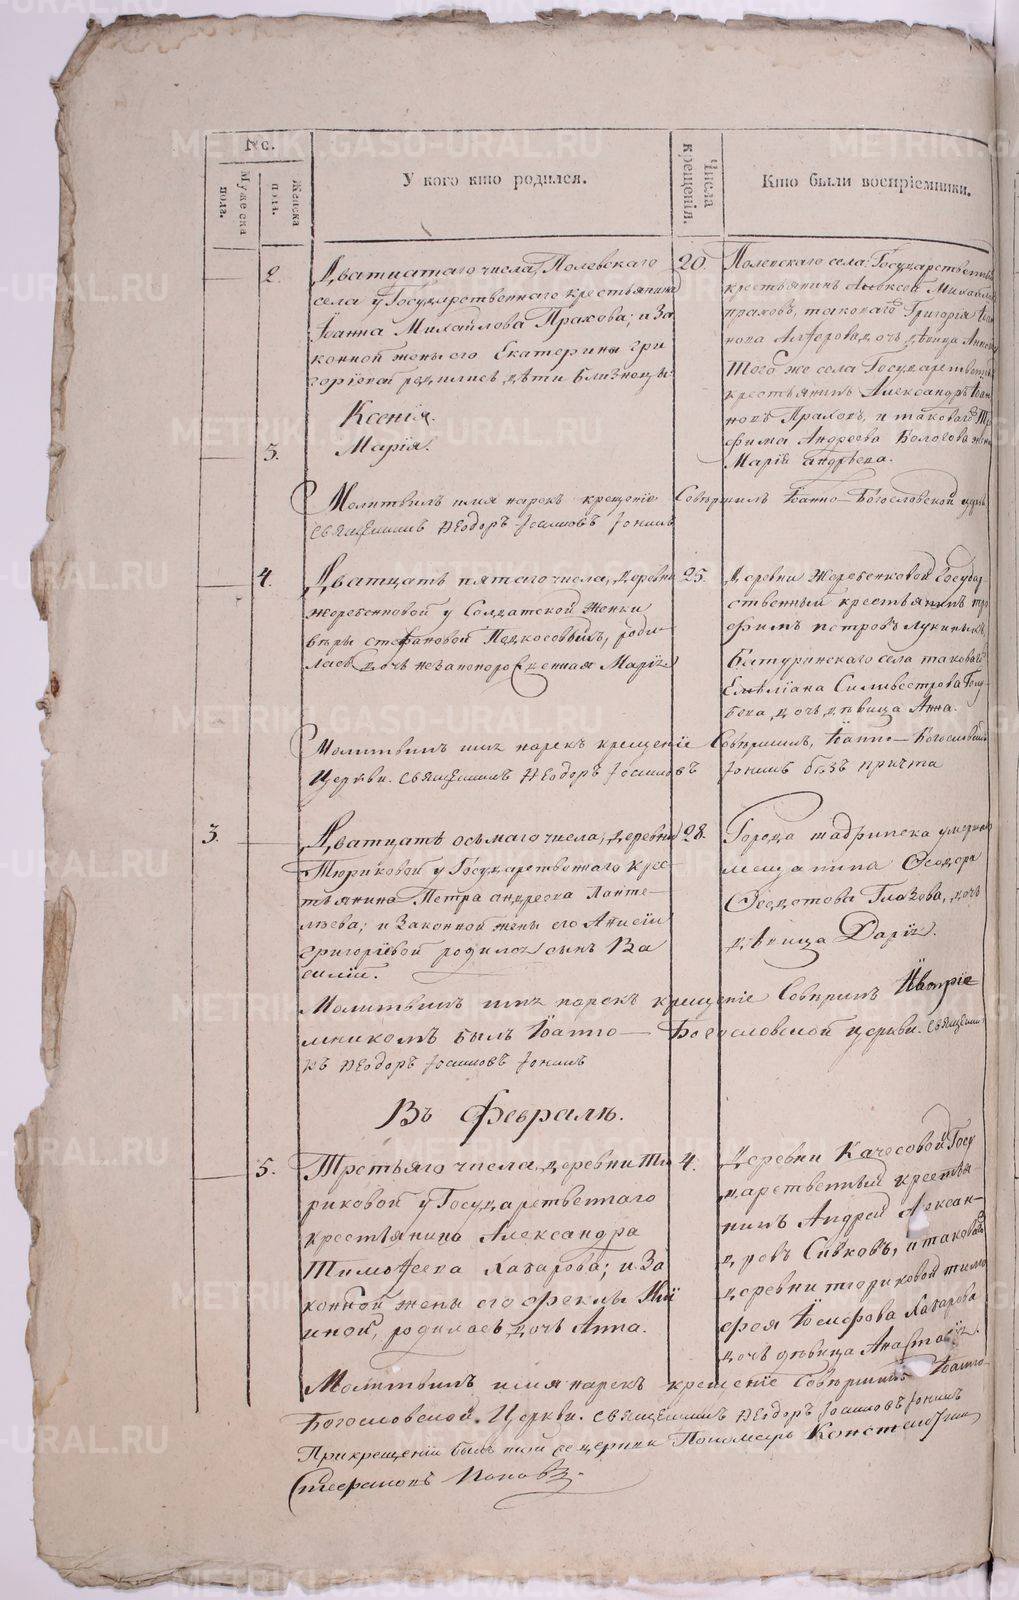 №.
Мужеска пола.
Женска пола.
У кого кто родился.
Числа крещенія.
Кто были воспріемники.
2.
Дватцатаго числа, Полевскаго
села у Государственнаго крестьянина
Іоанна Михайлова Прахова; и за
конной жены его Екатерины Гри
горіевой родились дѣти близнецы
Ксенія.
3.
Марія.
20.
Полевскаго села Государственный
крестьянинъ Алексей Михайловъ
Праховъ, таковаго Григорія Іоан
нова Алферова дочь дѣвица Анисья
Того же села Государственный
крестьянинъ Александръ Іоан
новъ Праховъ, и таковаго
фима Андреева Бологова жена
Марія Андрѣева.
Молитвилъ имя нарекъ крещеніе Совершилъ Іоанно-Богословской церкви
священникъ Ѳеодоръ
4.
Дватцать пятаго числа, деревни
Жеребенковой у Солдатской Женки
Вѣры Стефановой Подкосовыхъ, роди
лась дочь незаконорожденная Марія
25.
Деревни Жеребенковой Государ
ственный крестьянинъ Тро
фимъ Петровъ Лукиныхъ,
Батуринскаго села таковаго
Емѣліана Сильвестрова
дочь дѣвица Анна.
Молитвилъ имя нарекъ крещеніе Совершилъ, Іоанно-Богословской
Церкви Священникъ Ѳеодоръ
безъ причта
3.
Дватцать осьмаго числа, деревни
Тюриковой у Государственнаго крес
тьянина Петра Андреева Панте
лѣева; и Законной жены его Анисіи
Григоріевой родился сынъ Ва
силій.
28.
Города Шадринска умершаго
мещанина Ѳеодора
Ѳедотова Глазова, дочь
дѣвица Дарія.
Молитвилъ имя нарекъ крещеніе Совершилъ И воспріе
мникомъ былъ Іоанно-Богословской церкви Священни
къ Ѳеодоръ
Въ Февралѣ.
5.
Третьяго числа, деревни Тю
риковой у Государственнаго
крестьянина Александра
Тимоѳеева Захарова; и за
конной жены его Ѳеклы
иной, родилась дочь Анна.
4.
Деревни Качесовой Госу
дарственный крестья
нинъ Андрей Алексан
дровъ Сивковъ, и таковаго
деревни Тюриковой Тимо
фея Іосифова Захарова
дочь дѣвица Анастасія.
Молитвилъ имя нарекъ крещеніе Совершилъ Іоанно
Богословской Церкви Священникъ Ѳеодоръ
При крещеніи былъ той же церкви Пономарь Константинъ
Стефановъ Поповъ.
METRIKI.GASO-URAL.RU